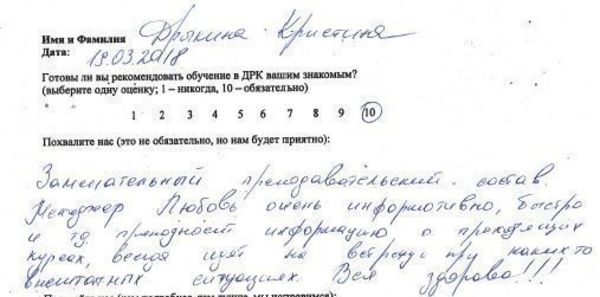 Имя и Фамилия Дрыкина Кристина
Дата: 19.03.2018
Готовы ли вы рекомендовать обучение в ДРК вашим знакомым?
(выберите одну оценку; 1 – никогда, 10 – обязательно)
1 2 3 4 5 6 7 8 9 10
Похвалите нас (это не обязательно, но нам будет приятно):
Замечательный преподавательский состав.
Менеджер Любовь очень информативно, быстро
и тд. преподносит информацию о проходящих
курсах, всегда идёт на встречу при каких то
внештатных ситуациях. Всё здорово!!!